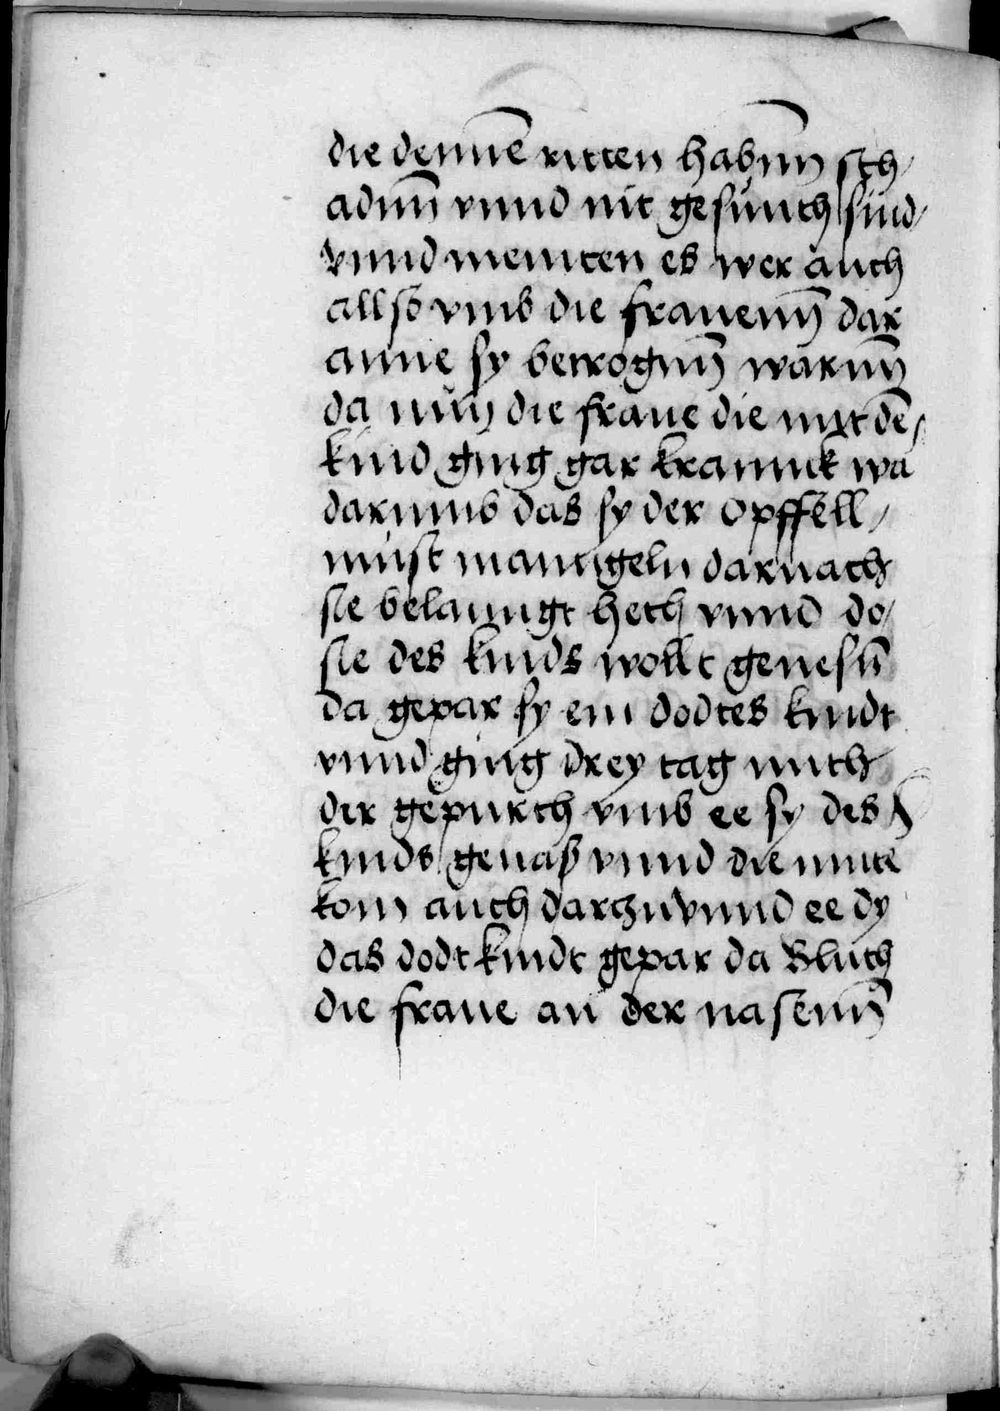 die dennē ritten habnn̄ sch/
adnn̄ vnnd nit gesunth sind/
vnnd meinten es wer auch
allso vmb die frauenn̄ dar
anne sy betrognn̄ warnn̄
da nun die fraue die mit dē/
kind ging gar krannck wa
darumb das sy der Opffell/
must manngeln darnach
sie belanngt heth vnnd do/
sie des kinds wollt genesn̄
da gepar sy ein dodtes kindt
vnnd ging drey tag mith
der gepurth vmb ee sy des
kinds genaß vnnd die mute
kom auch darzu vnnd ee dy
das dodt kindt gepar da Bluth
die fraue an der nasenn̄